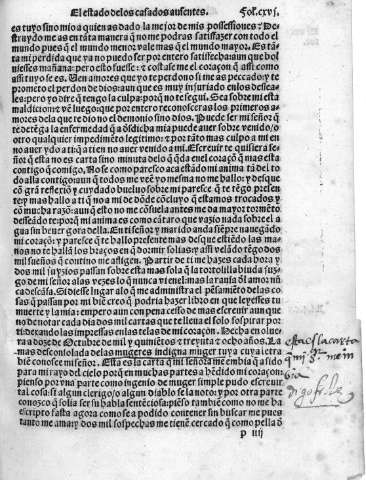 El estado delos casados ausentes. Fol. cxvj.
es tuyo sino mio a quien as dado la mejor de mis possessiones? Des
traydo me as en tãta manera q̃ no me podras satisfazer con todo el
mundo pues q̃ el mundo menor vale mas que el mundo mayor. Es tã
ta mi perdida que ya no puedo ser por entero satisfecha: aun que bol
uiesses mañana: pero esto fuesse: z costasse me el coraçon q̃ assi como
assi tuyo se es. Uen amores que yo te perdono si me as peccado: y te
prometo el perdon de dios: aun que es muy injuriado enlos dessea
les: pero yo dire q̃ tengo la culpa: porq̃ no te segui. Sea sobre mi esta
maldictõ: z vẽ luego: que por entero reconosceras los primeros a
mores dela que te dio no el demonio sino dios. Puede ser mi señor q̃
te detẽga la enfermedad q̃ a dicha mia puede auer sobre venido: o
otro qualquier impedimẽto legitimo: z por tãto mas culpo a mi en
no auer ydo a ti q̃ a ti en no auer venido a mi. Escreuir te quisiera se
ñor q̃ esta no es carta sino minuta delo q̃ q̃da enel coraçõ q̃ mas esta
contigo q̃ comigo. No se como paresco aca estãdo mi anima tã del to
do alla contigo: aun q̃ todos me veẽ yo mesma no me hallo: y desque
cõ grã reflexiõ y cuydado bueluo sobre mi paresce q̃ te tẽgo presen
te y mas hallo a ti q̃ no a mi de dõde cõcluyo q̃ estamos trocados y
cõ mucha razõ: aun q̃ esto no me cõsuela antes me da mayor tormẽto
desseãdo te: porq̃ mi anima es como cãtaro que vazio nada sobre el a
gua sin beuer gota della. En ti señor y marido anda siẽpre nauegãdo
mi coraçõ: y paresce que te hallo presente mas desque estiẽdo las ma
nos no te hallã los braços en q̃ dormir solias: y assi velãdo tẽgo dos
mil sueños q̃ contino me afligen. Partir de ti me hazes cada hora y
dos mil juyzios passan sobre esta mas sola q̃ la tortolilla biuda juz
go de mi señor a las vezes lo q̃ nunca vi enel mas la rauia dl amor nũ
ca descãsa. Si diesse lugar alo q̃ me administra el pẽsamiẽto delas co
sas q̃ passan por mi biẽ creo q̃ podria hazer libro en que leyesses tu
muerte y la mia: empero aun con pena cesso de mas escreuir aun que
no de notar cada dia dos mil cartas que te lleua el solo sospirar por
ti dexando las impressas enlas telas de mi coraçon. Hecha en olue
ra a doze de Octubre de mil y quinientos z treynta z ocho años. La
mas desconsolada de las mugeres indigna muger tuya cuya erra
biẽ conosce mi señor. Esta es la carta q̃ mi señora me embia q̃ a sido
para mi rayo del cielo porq̃ en muchas partes a hẽdido mi coraçon:
pienso por vna parte como ingenio de muger simple pudo escreuir
tal cosa: si algun clerigo/o algun diablo se la noto: y por otra parte
conozco q̃ solia ser su habla sentẽciosa: piẽso tambiẽ como no me ha
escripto fasta agora como se a podido contener sin buscar me pues
tanto me ama: y dos mil sospechas me tienẽ cercado q̃ como pella õ
p iiij
esta es la carta
q̃ mi